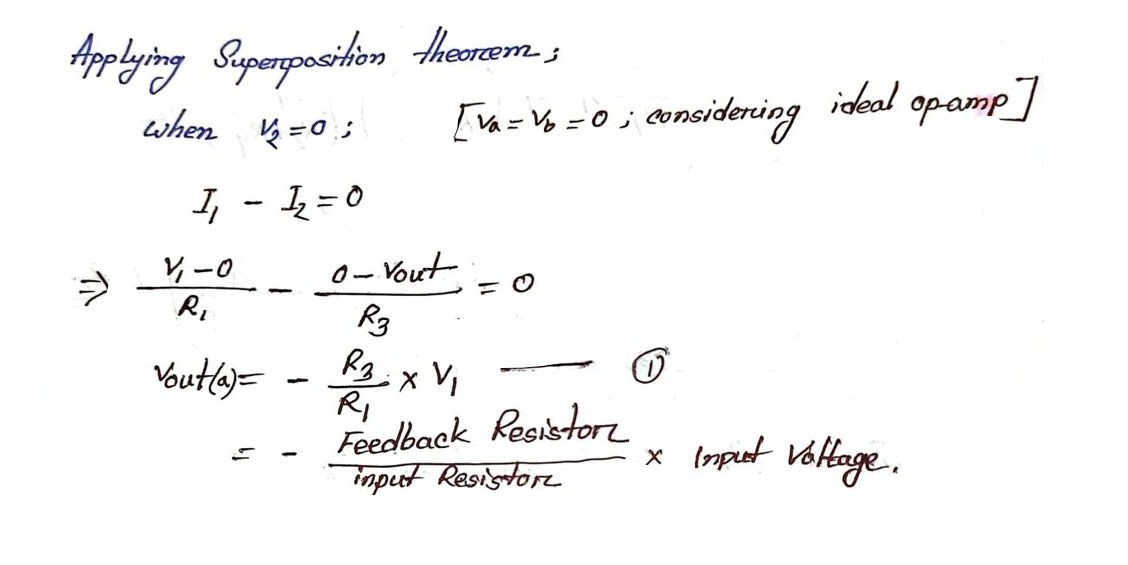 Applying Superposition theorem;
when V₂ = 0 ; [Va = Vb = 0 ; considering ideal op-amp]
I₁ - I₂ = 0
⇒ (V₁ - 0)/R₁ - (0 - Vout)/R₃ = 0
Vout(a) = - R₃/R₁ × V₁ —— ①
= - Feedback Resistor/input Resistor × Input Voltage.